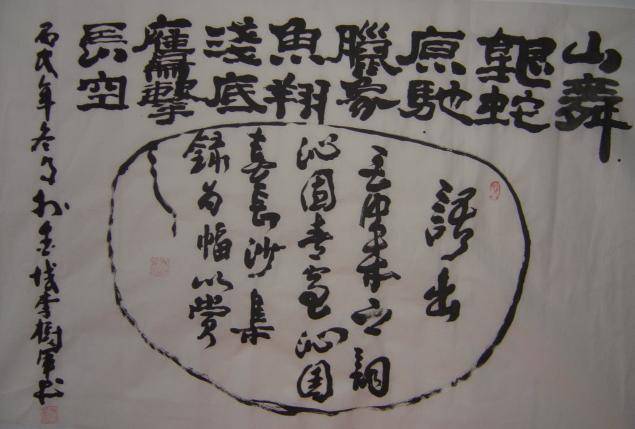 山舞
銀蛇
原馳
臘象
魚翔
淺底
鷹擊
長空
語出
之詞
沁園春雪沁園
春長沙集
錄為幅以賞
年冬月於金城李樹軍書